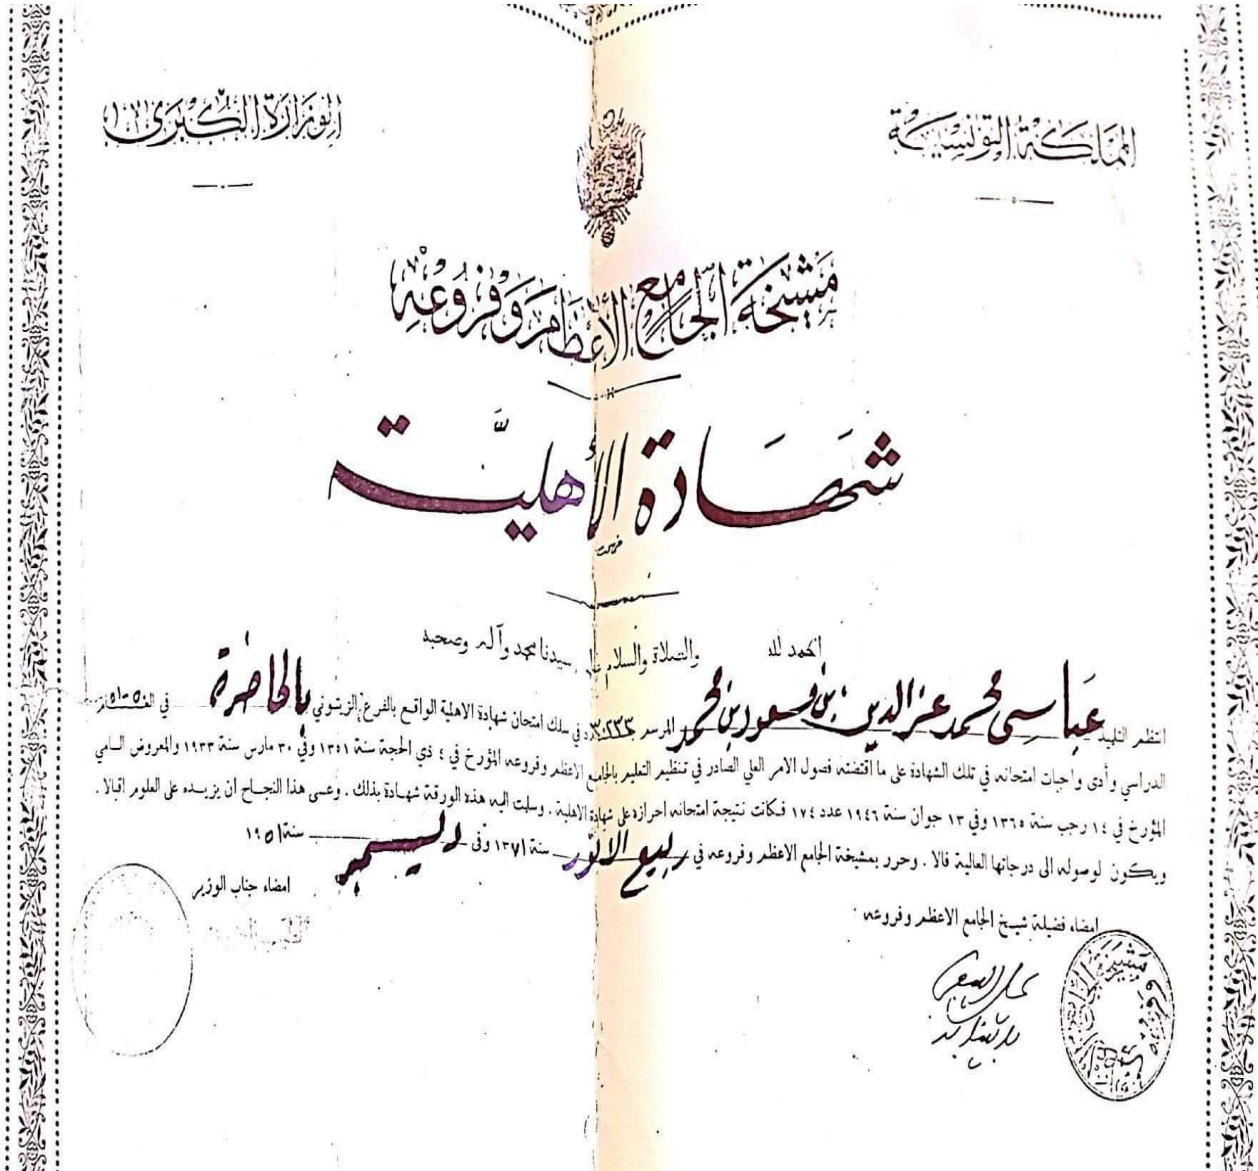 المملكة التونسية
الوزارة الكبرى
مشيخة الجامع الأعظم وفروعه
شهادة الأهلية
الحمد لله والصلاة والسلام على سيدنا محمد وآله وصحبه
انتظم التلميذ عباسي محمد عز الدين بن مسعود بن محمد المرسم في سلك امتحان شهادة الاهلية الواقع بالفرع الزيتوني بالحاضرة في العام
الدراسي وأدى واجبات امتحانه في تلك الشهادة على ما اقتضته فصول الامر العلي الصادر في تنظيم التعليم بالجامع الاعظم وفروعه المؤرخ في ٤ ذي الحجة سنة ١٣٥١ وفي ٣٠ مارس سنة ١٩٣٣ والمعروض السامي
المؤرخ في ١٤ رجب سنة ١٣٦٥ وفي ١٣ جوان سنة ١٩٤٦ عدد ١٧٤ فكانت نتيجة امتحانه احرازه على شهادة الاهلية . وسلمت اليه هذه الورقة شهادة بذلك . وعسى هذا النجاح ان يزيده على العلوم اقبالا .
ويكون لوصوله الى درجاتها العالية فالا . وحرر بمشيخة الجامع الاعظم وفروعه في ربيع الانور سنة ١٣٧١ وفي ديسمبر سنة ١٩٥١
امضاء جناب الوزير
امضاء فضيلة شيخ الجامع الاعظم وفروعه